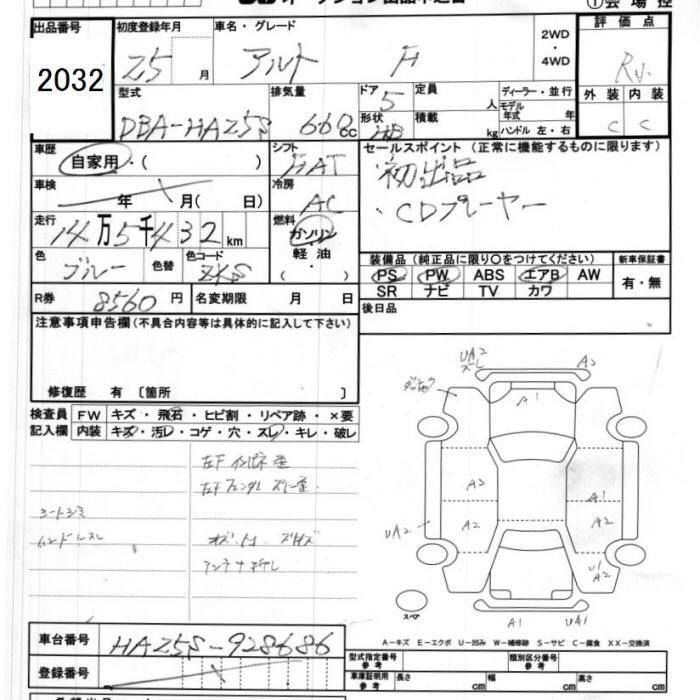 出品番号 初度登録年月 車名・グレード 2WD・4WD 評価点
2032 25 月 アルト F
型式 排気量 ドア 定員 ディーラー・並行 外装 内装
DBA-HA25S 660cc 5 人 モデル年式 年 C C
形状 積載 kg ハンドル 左・右
車歴 シフト セールスポイント(正常に機能するものに限ります)
自家用・( ) FAT 初出品
車検 年 月( 日) 冷房 AC ・CDプレーヤー
走行 燃料
14万5千432km ガソリン・軽油
( )
色 色替 色コード
ブルー ZKS
装備品(純正品に限り○をつけてください) 新車保証書
PS PW ABS エアB AW 有・無
SR ナビ TV カワ
R券 8560円 名変期限 月 日 後日品
注意事項申告欄(不具合内容等は具体的に記入して下さい)
修復歴 有 〔箇所 〕
検査員 FW キズ・飛石・ヒビ割・リペア跡・×要
記入欄 内装 キズ・汚レ・コゲ・穴・スレ・キレ・破レ
左Fインパネ歪
シートシミ
ハンドルスレ
UA2 A2
ズレ
A1
A2 A1
UA2 A2 A2
U1
A2
スペア
A1 UA1
A-キズ E-エクボ U-凹み W-補修跡 S-サビ C-腐食 XX-交換済
車台番号 HA25S-928686
登録番号
型式指定番号 参考 類別区分番号 参考
車庫証明用 参考 長さ cm 幅 cm 高さ cm